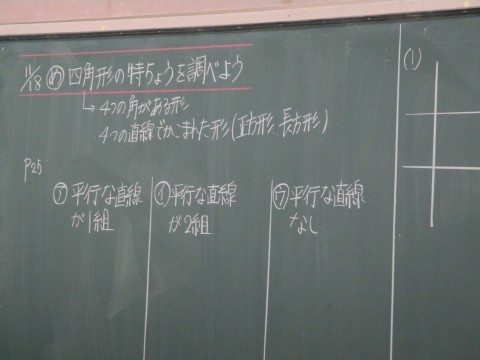 11/8 め 四角形の特ちょうを調べよう
→4つの角がある形
4つの直線でかこまれた形(正方形、長方形)
P25
ア 平行な直線
が1組
イ 平行な直線
が2組
ウ 平行な直線
なし
(1)